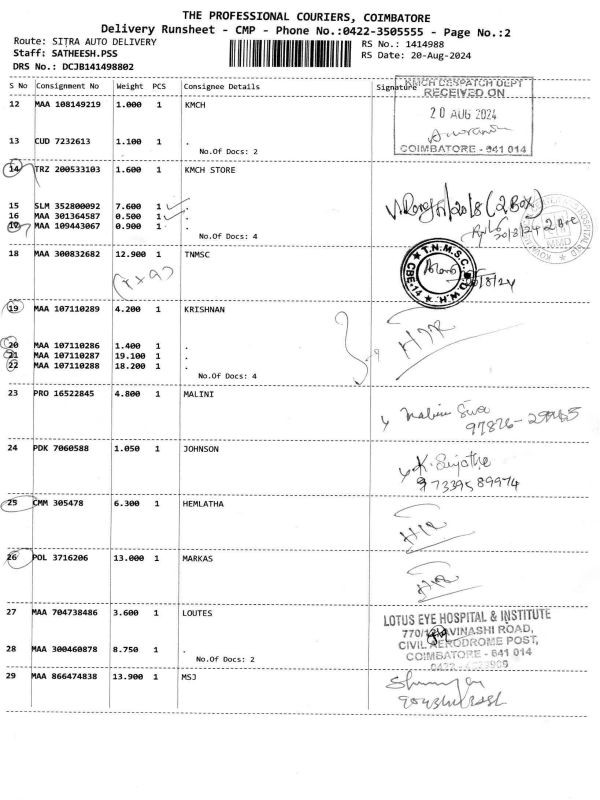 THE PROFESSIONAL COURIERS, COIMBATORE
Delivery Runsheet - CMP - Phone No.:0422-3505555 - Page No.:2
Route: SITRA AUTO DELIVERY
RS No.: 1414988
Staff: SATHEESH.PSS
RS Date: 20-Aug-2024
DRS No.: DCJB141498802
S No Consignment No Weight PCS Consignee Details Signature
KMCH DESPATCH DEPT
RECEIVED ON
20 AUG 2024
COIMBATORE - 641 014
12 MAA 108149219 1.000 1 KMCH
13 CUD 7232613 1.100 1 .
No.Of Docs: 2
14 TRZ 200533103 1.600 1 KMCH STORE
15 SLM 352800092 7.600 1 .
16 MAA 301364587 0.500 1 .
17 MAA 109443067 0.900 1 .
No.Of Docs: 4
(2 Box)
20/8/24 2 Box
18 MAA 300832682 12.900 1 TNMSC
T.N.M.S.C
CBE-14
19 MAA 107110289 4.200 1 KRISHNAN
20 MAA 107110286 1.400 1 .
21 MAA 107110287 19.100 1 .
22 MAA 107110288 18.200 1 .
No.Of Docs: 4
23 PRO 16522845 4.800 1 MALINI
Malini Siva
24 PDK 7060588 1.050 1 JOHNSON
K. Sujathe
9733958 9974
25 CMM 305478 6.300 1 HEMLATHA
26 POL 3716206 13.000 1 MARKAS
27 MAA 704738486 3.600 1 LOUTES
28 MAA 300460878 8.750 1 .
No.Of Docs: 2
LOTUS EYE HOSPITAL & INSTITUTE
AVINASHI ROAD,
CIVIL AERODROME POST,
COIMBATORE - 641 014
29 MAA 866474838 13.900 1 MSJ